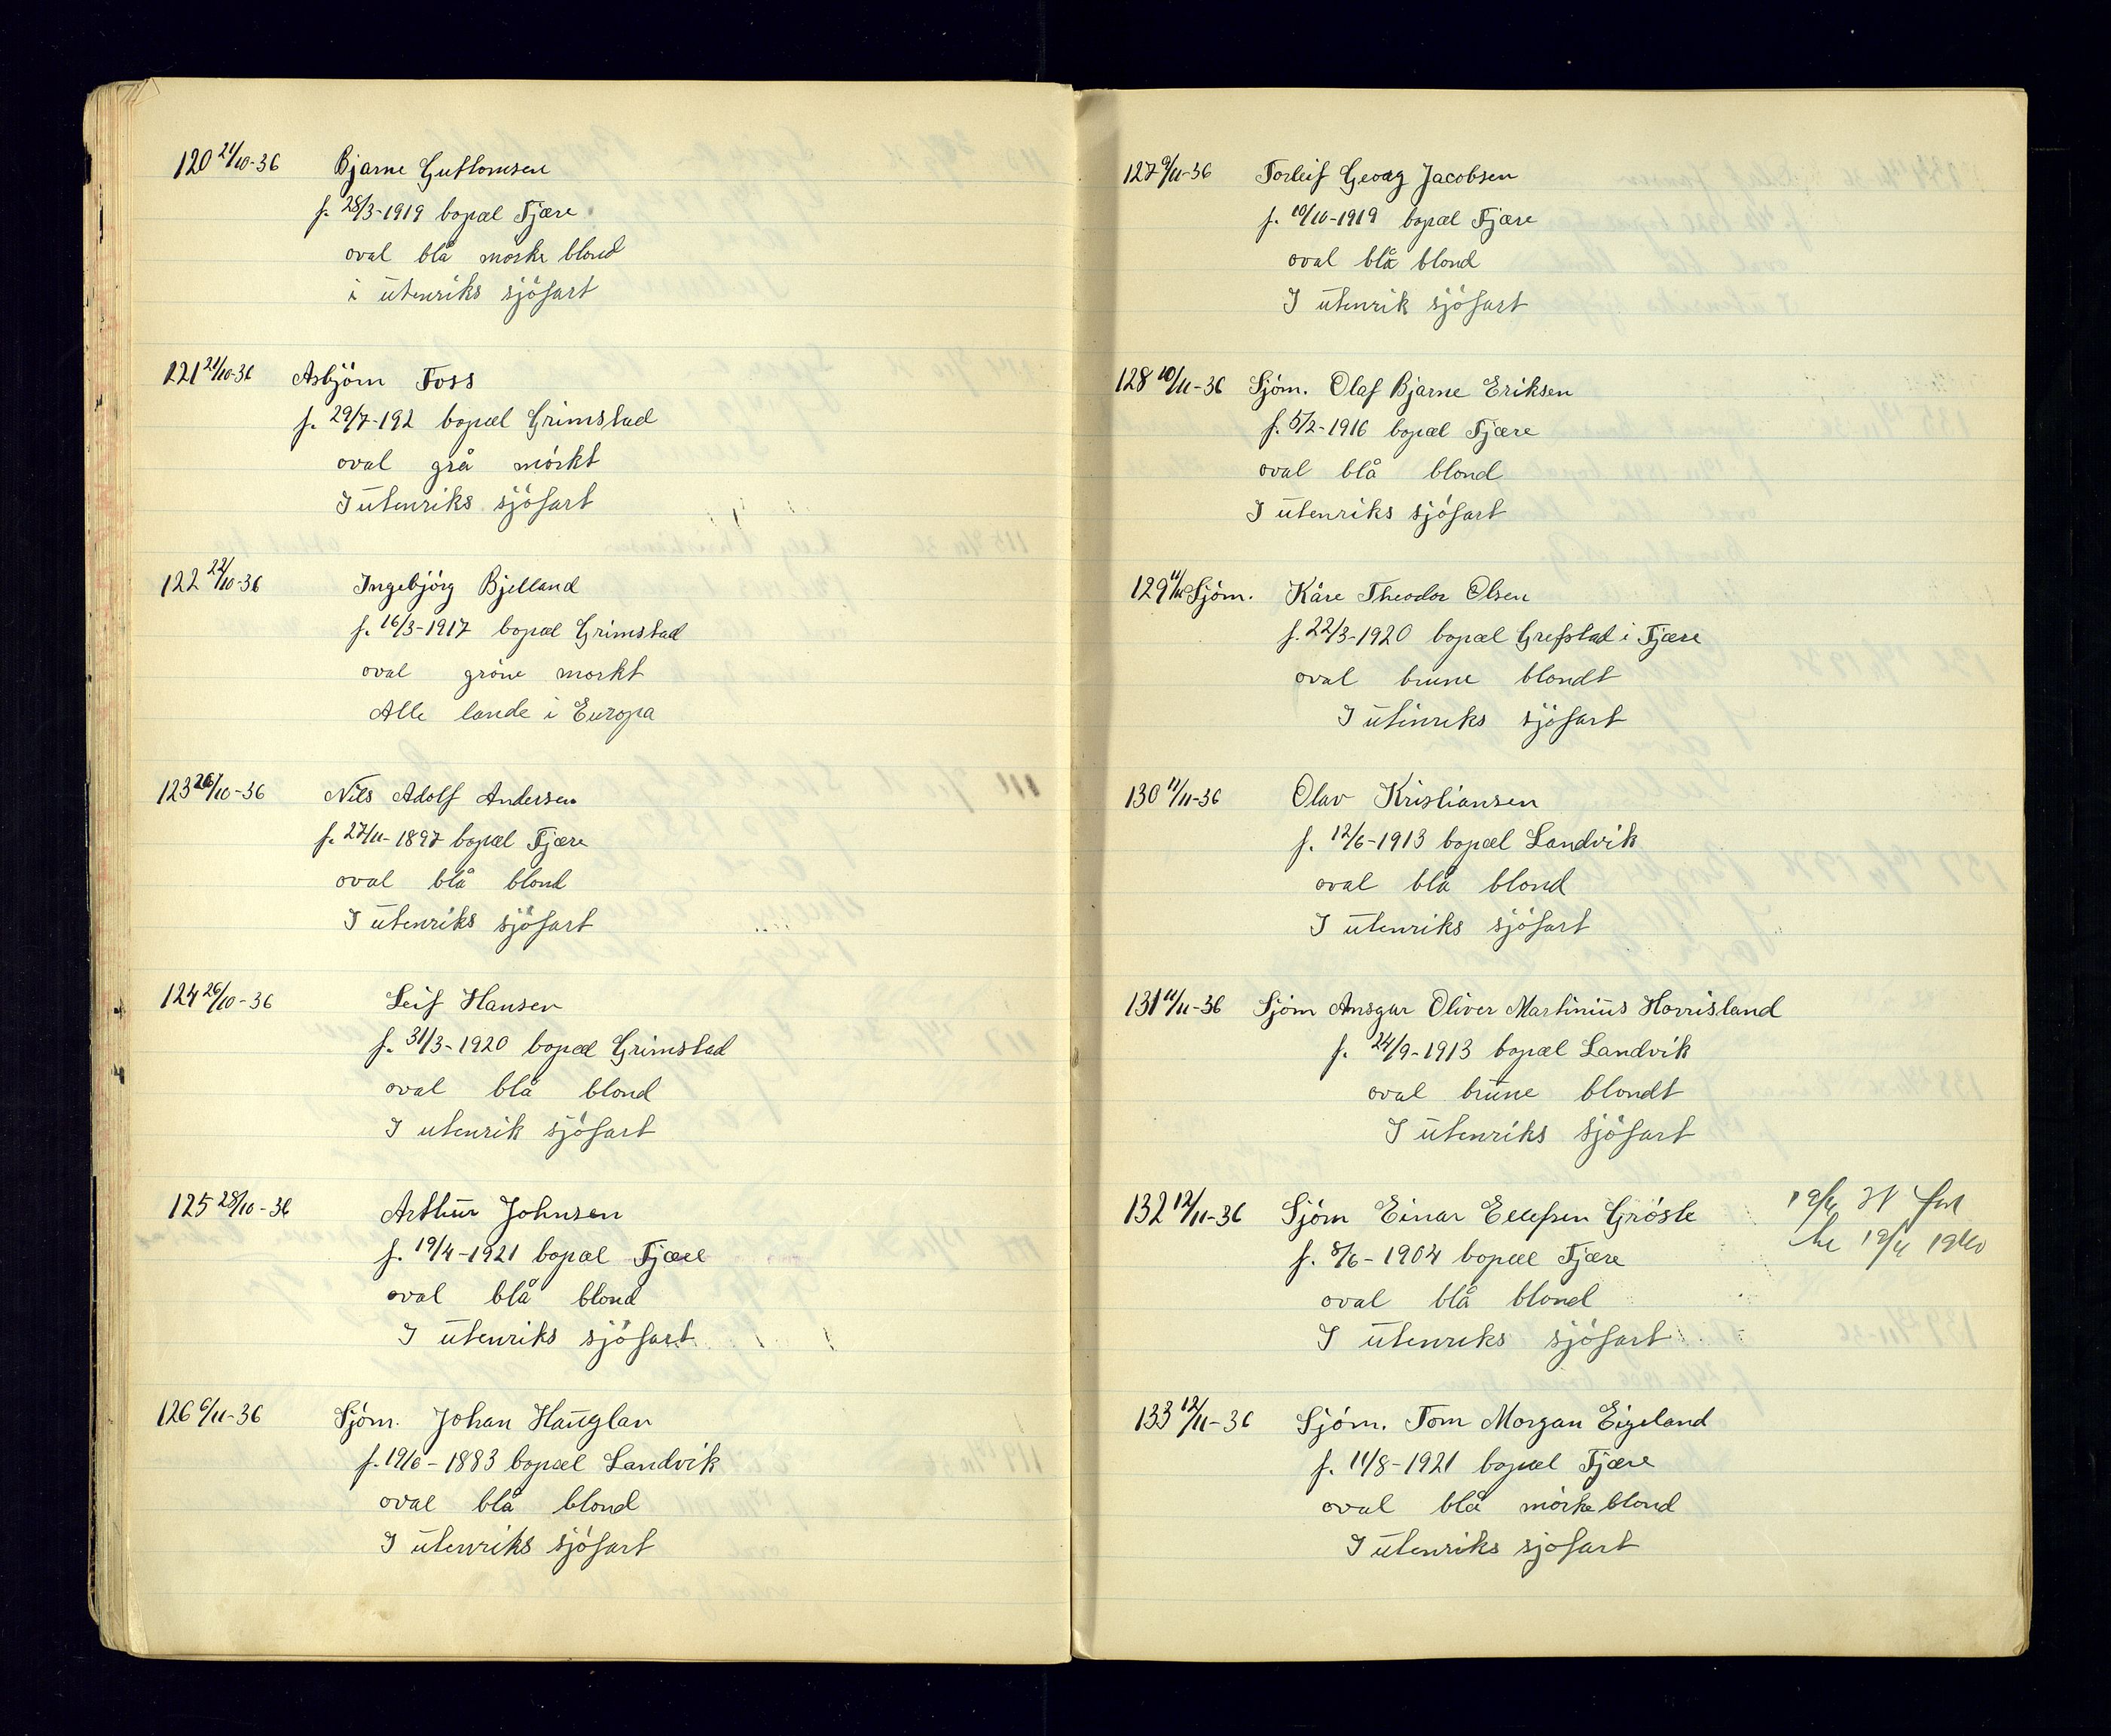 120 21/10-36 Bjarne Guttomsen
f. 28/3-1919 bopæl Fjære
oval blå mørke blond
i utenriks sjöfart
121 21/10-36 Asbjörn Foss
f. 29/7-192 bopæl Grimstad
oval grå mörkt
I utenriks sjöfart
122 22/10-36 Ingebjörg Bjelland
f. 16/3-1917 bopæl Grimstad
oval gröne morkt
Alle lande i Europa
123 26/10-36 Nils Adolf Andersen
f. 27/11-1897 bopæl Fjære
oval blå blond
I utenriks sjöfart
124 26/10-36 Leif Hansen
f. 31/3-1920 bopæl Grimstad
oval blå blond
I utenrik sjöfart
125 28/10-36 Arthur Johnsen
f. 19/4-1921 bopæl Fjære
oval blå blond
I utenriks sjöfart
126 6/11-36 Sjöm. Johan Hauglan
f. 19/6-1883 bopæl Landvik
oval blå blond
I utenriks sjöfart
127 9/11-36 Torleif Georg Jacobsen
f. 10/10-1919 bopæl Fjære
oval blå blond
I utenrik sjöfart
128 10/11-36 Sjöm. Olaf Bjarne Eriksen
f. 5/2-1916 bopæl Fjære
oval blå blond
I utenriks sjöfart
129 11/11 Sjöm. Kåre Theodor Olsen
f. 22/3-1920 bopæl Grefstad i Fjære
oval brune blondt
I utinriks sjöfart
130 11/11-36 Olav Kristiansen
f. 12/6-1913 bopæl Landvik
oval blå blond
I utenriks sjöfart
131 11/11-36 Sjöm Ansgar Oliver Martinius Horrisland
f. 24/9-1913 bopæl Landvik
oval brune blondt
I utenriks sjöfart
132 12/11-36 Sjöm Einar Ellefsen Gröste
f. 8/6-1904 bopæl Fjære
oval blå blond
I utenriks sjöfart
1940
133 12/11-36 Sjöm. Tom Morgan Eigeland
f. 11/8-1921 bopæl Fjære
oval blå mörke blond
I utenriks sjöfart